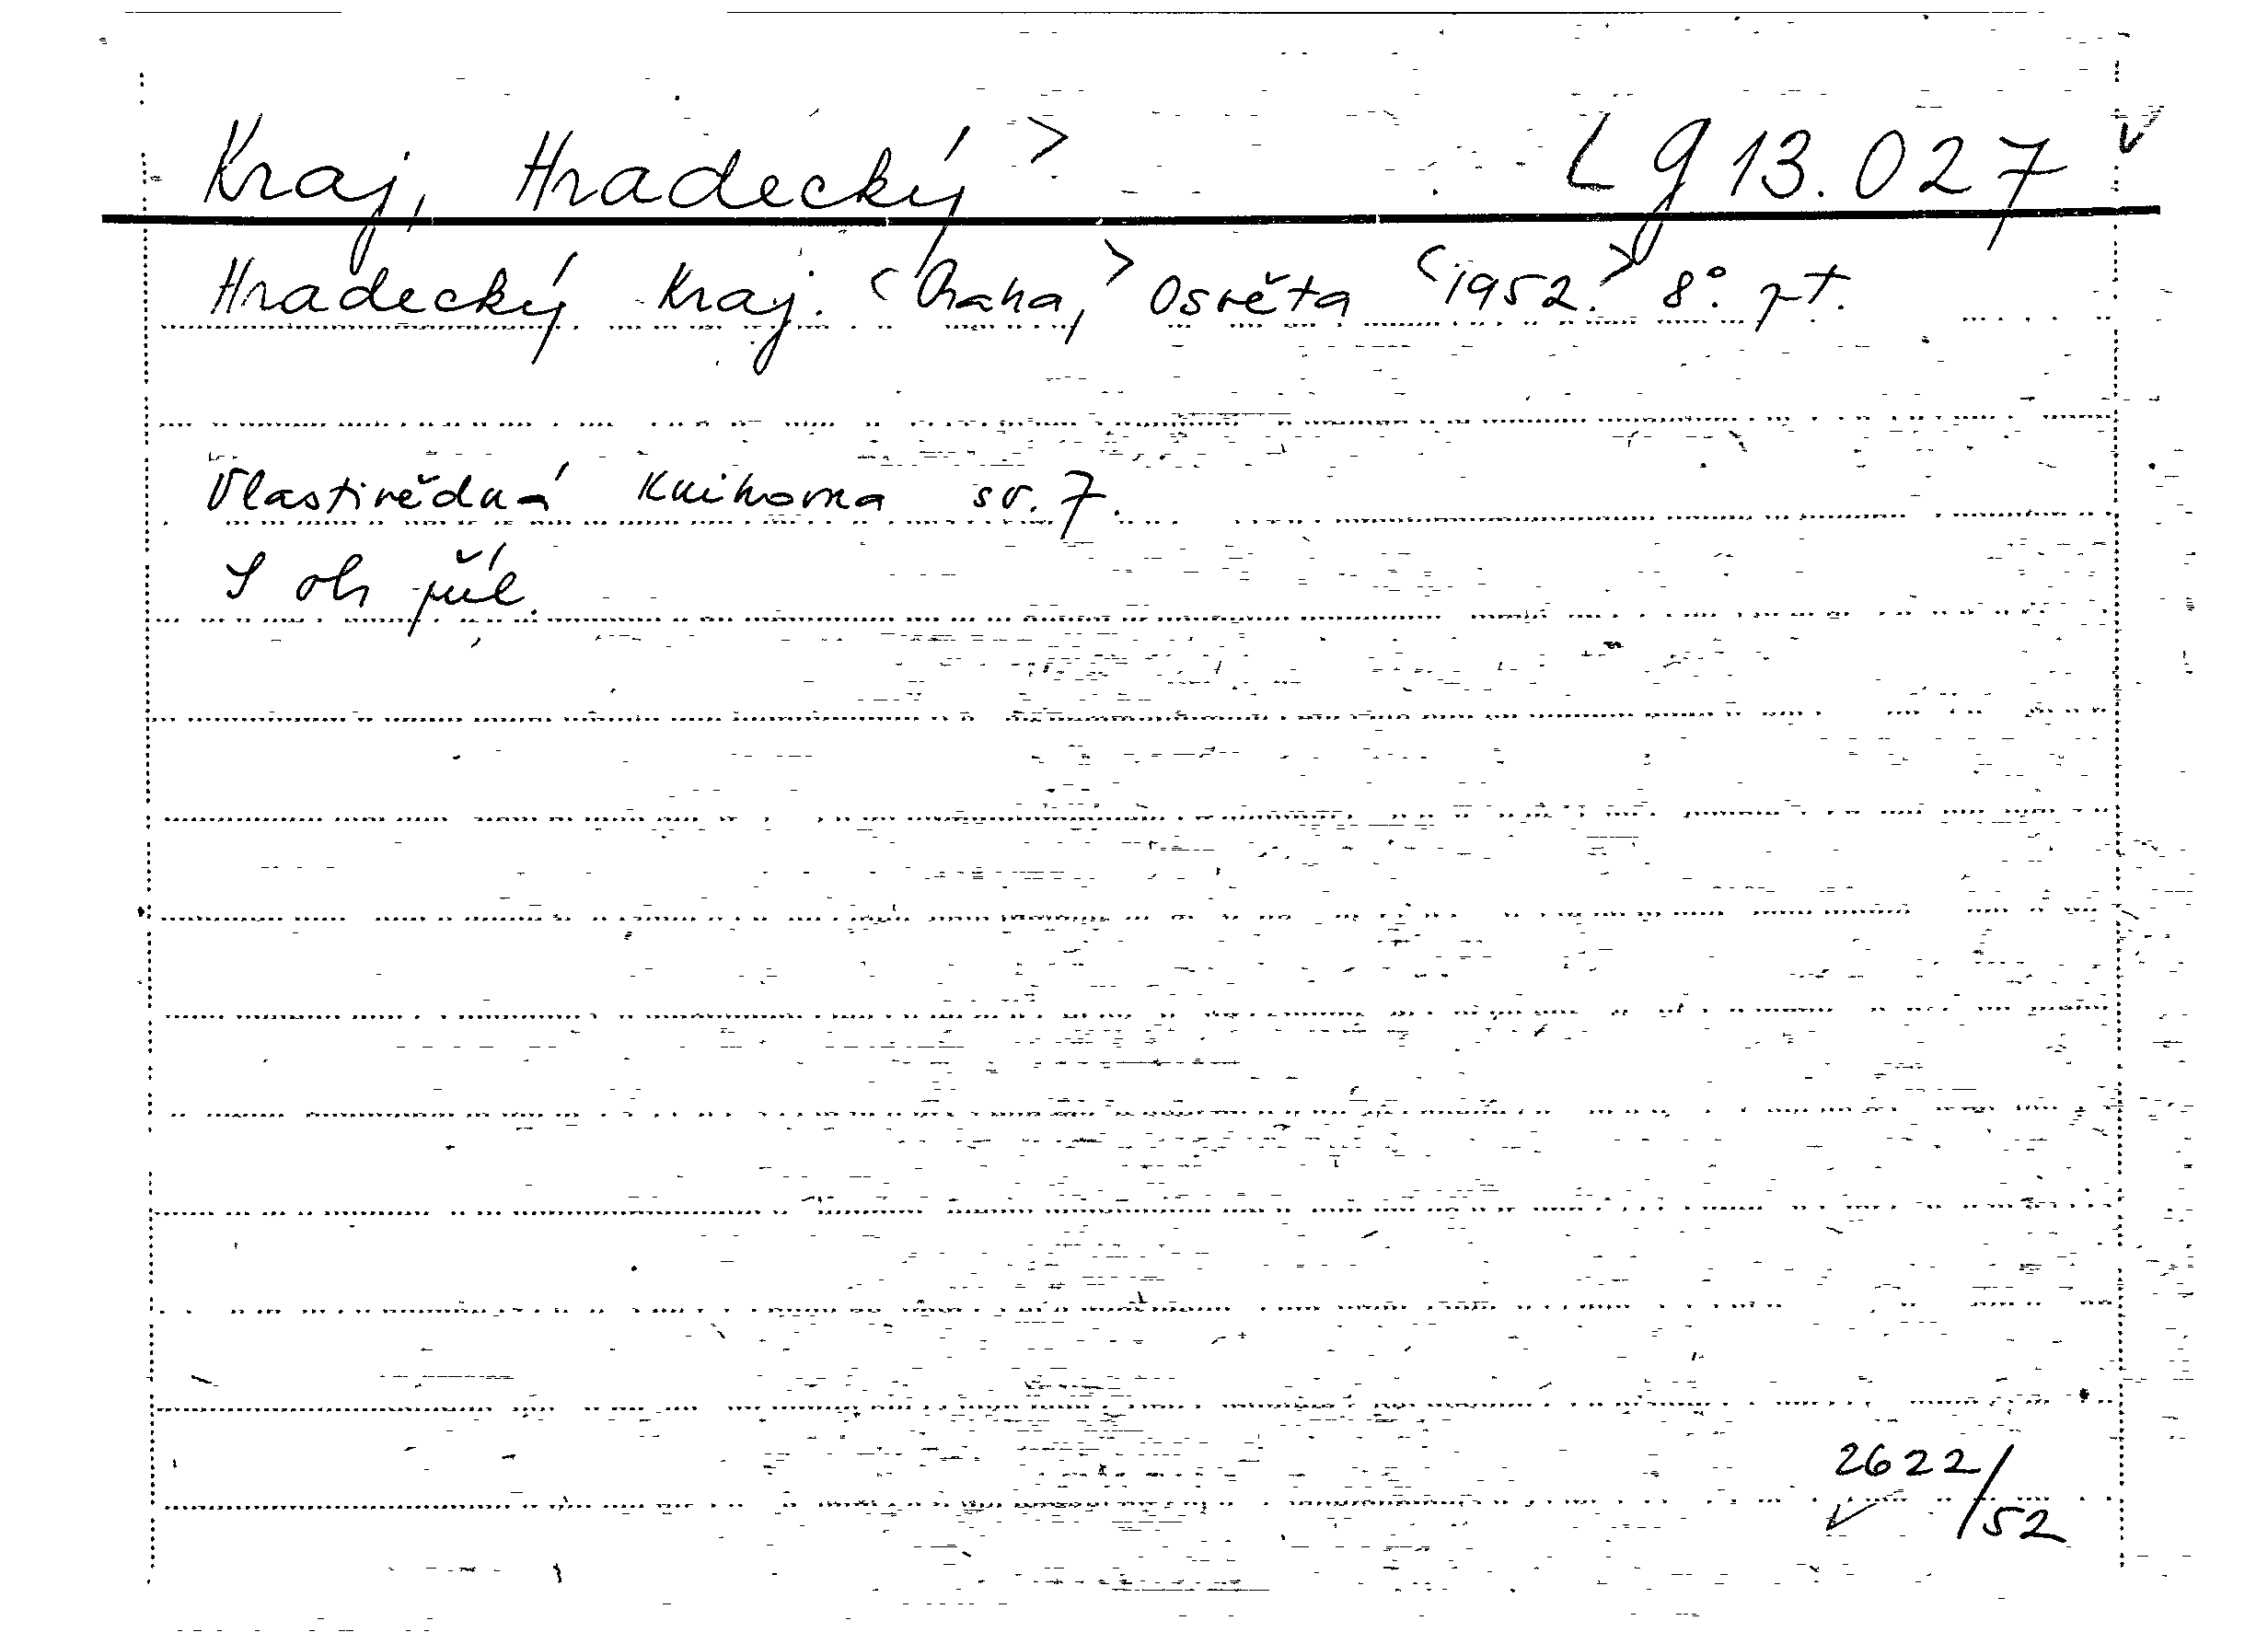 Kraj, Hradecký > Lg 13.027
Hradecký Kraj. <Praha,> Osvěta <1952.> 8°. pt.
Vlastivědná Knihovna sv. 7.
S ob příl.
2622/52